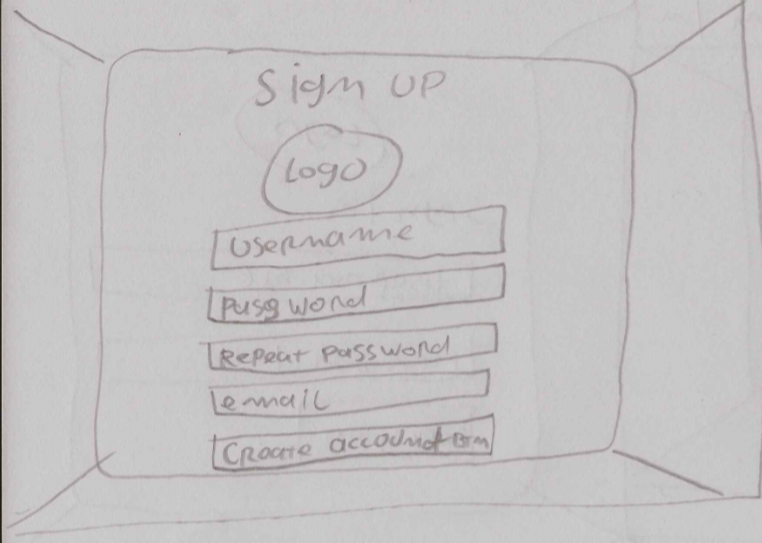 Sign UP
Logo
Username
Password
Repeat password
email
Create account BTN